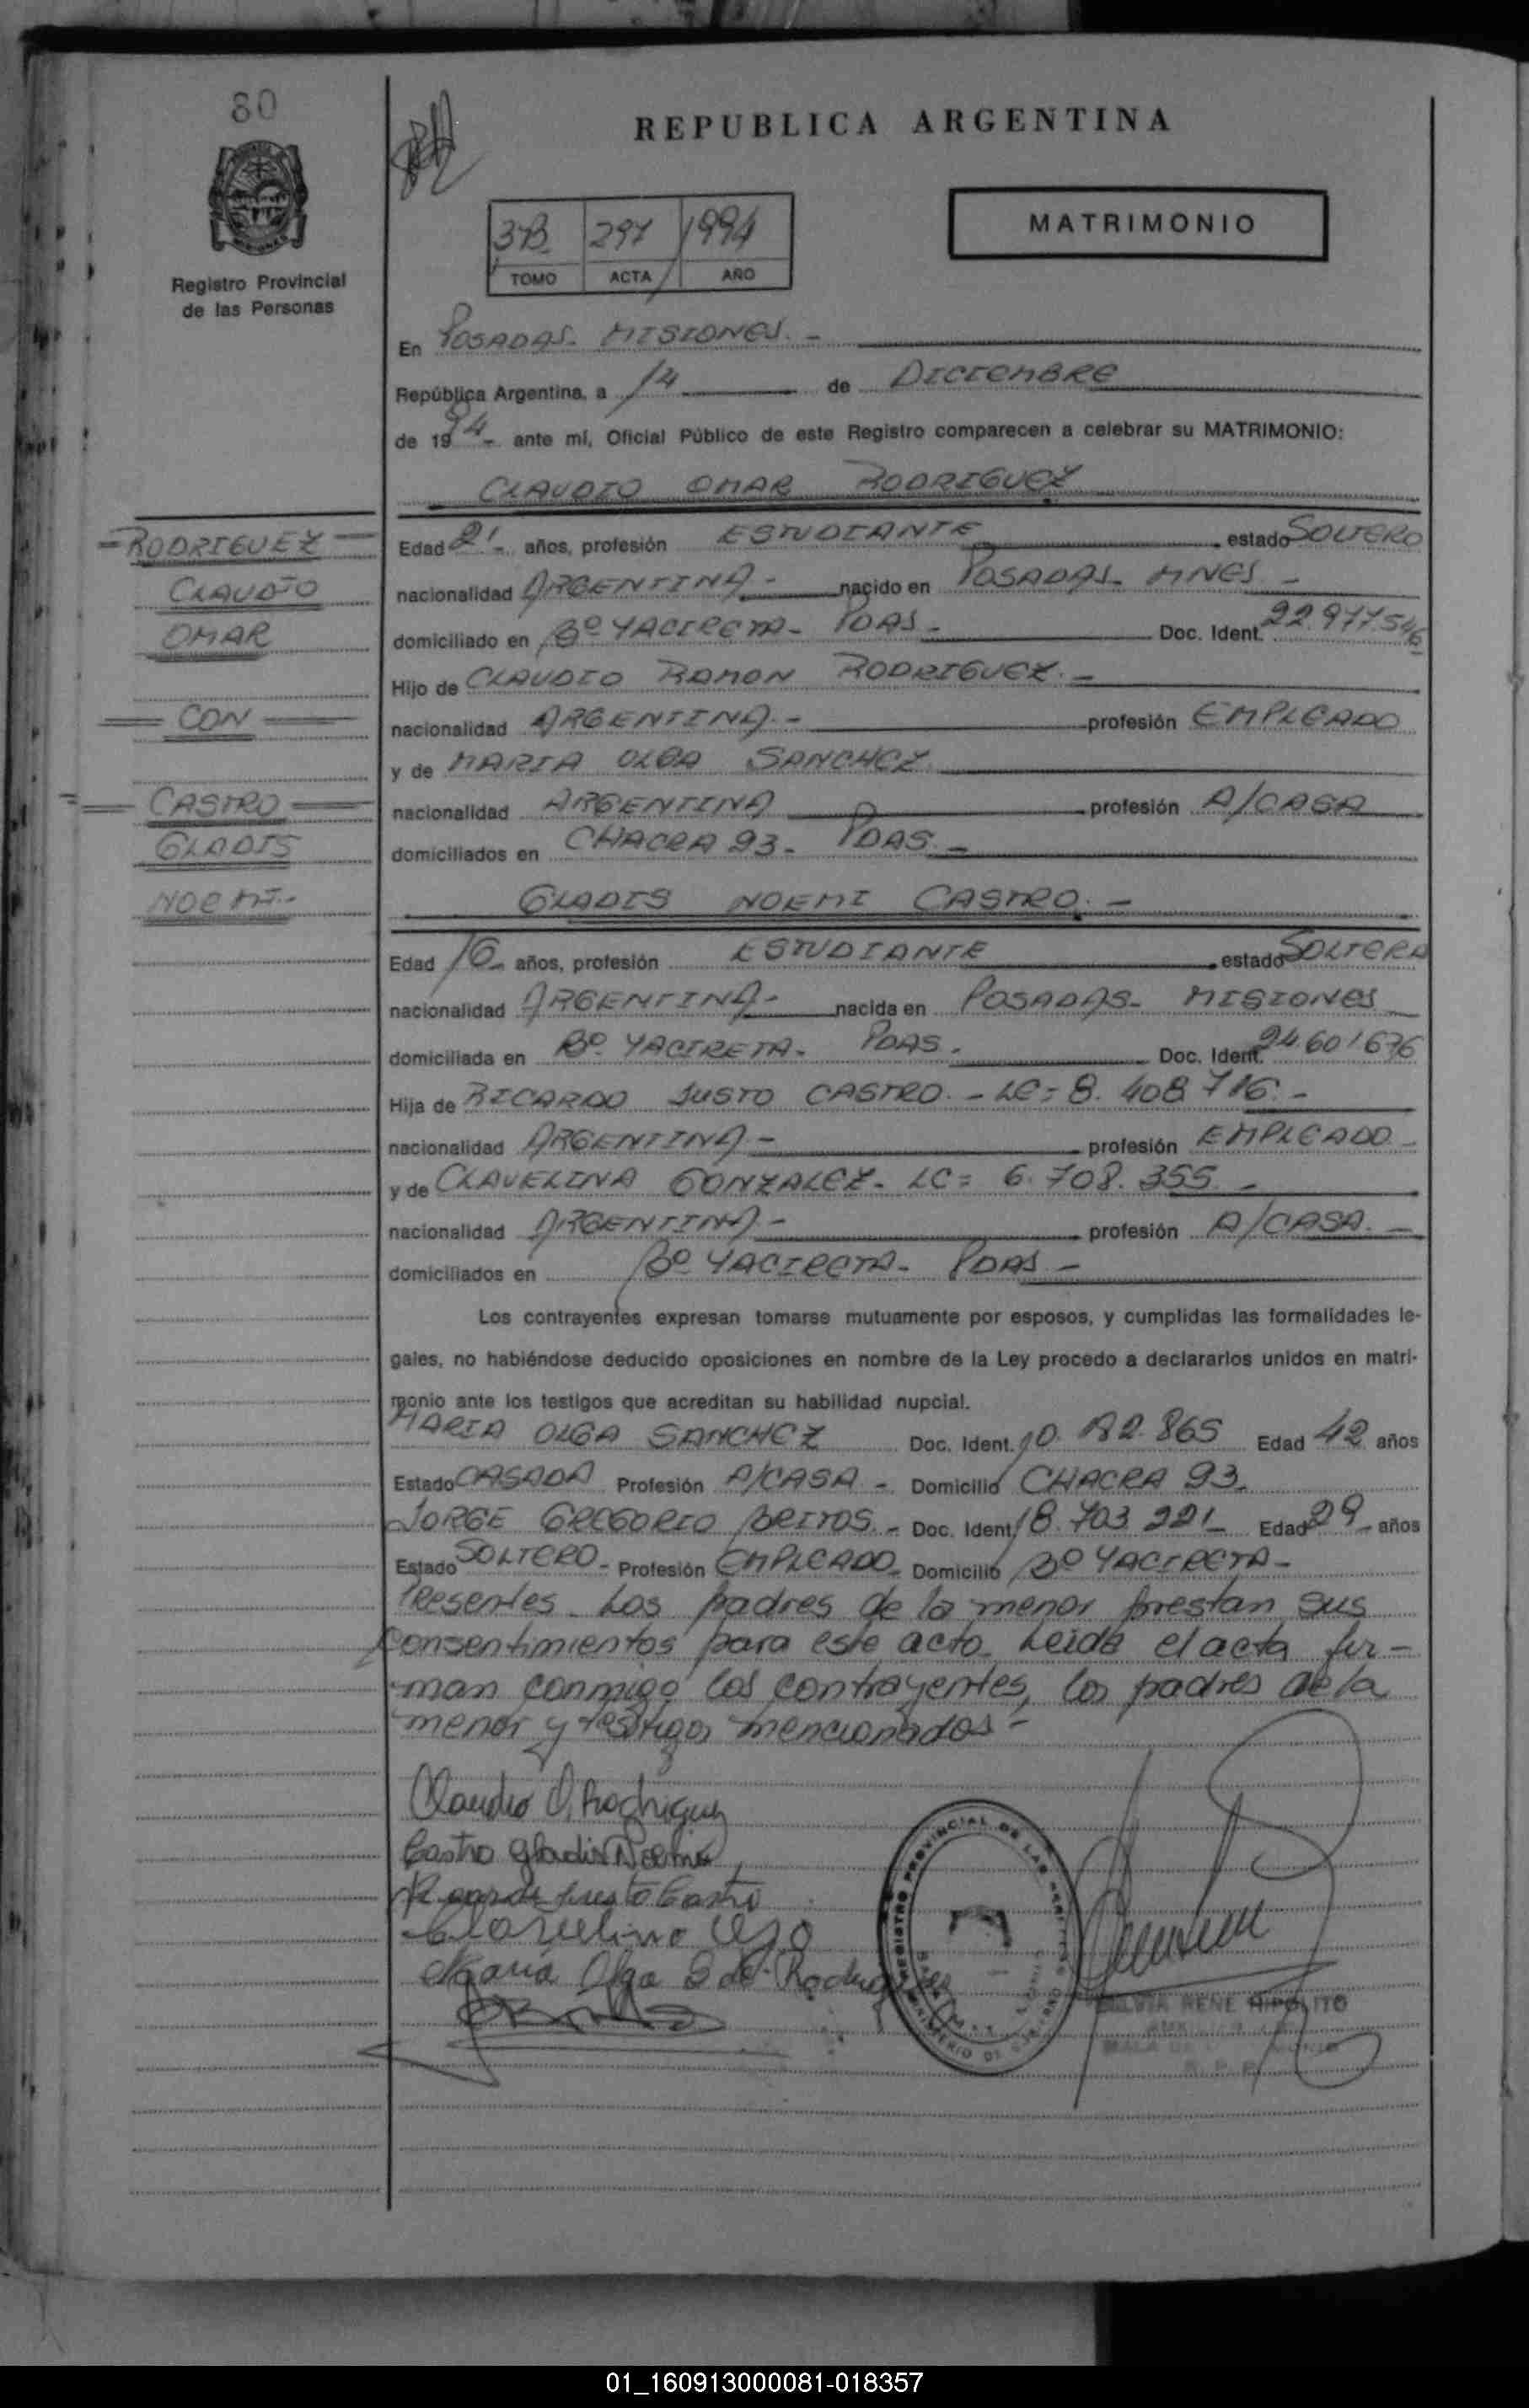 80
REPUBLICA ARGENTINA
MATRIMONIO
297 1994
TOMO ACTA AÑO
Registro Provincial
de las Personas
En POSADAS. MISIONES. -
República Argentina, a 14 de DICIEMBRE
de 1994- ante mí, Oficial Público de este Registro comparecen a celebrar su MATRIMONIO:
CLAUDIO OMAR RODRIGUEZ
- RODRIGUEZ -
CLAUDIO
OMAR
CON
CASTRO
GLADIS
NOEMI.-
Edad 21- años, profesión ESTUDIANTE estado SOLTERO
nacionalidad ARGENTINA- nacido en POSADAS- MNES -
domiciliado en Bº YACIRETA- PDAS- Doc. Ident. 22.977.546
Hijo de CLAUDIO RAMON RODRIGUEZ. -
nacionalidad ARGENTINA. - profesión EMPLEADO
y de MARIA OLGA SANCHEZ
nacionalidad ARGENTINA profesión A/CASA
domiciliados en CHACRA 93- PDAS. -
GLADIS NOEMI CASTRO. -
Edad 16- años, profesión ESTUDIANTE estado SOLTERA
nacionalidad ARGENTINA- nacida en POSADAS- MISIONES
domiciliada en Bº YACIRETA- PDAS. Doc. Ident. 24 601 676
Hija de RICARDO JUSTO CASTRO. - LE= 8. 408 716. -
nacionalidad ARGENTINA. - profesión EMPLEADO -
y de CLAVELINA GONZALEZ- LC= 6. 708. 355. -
nacionalidad ARGENTINA. - profesión A/CASA. -
domiciliados en Bº YACIRETA- PDAS -
Los contrayentes expresan tomarse mutuamente por esposos, y cumplidas las formalidades le-
gales, no habiéndose deducido oposiciones en nombre de la Ley procedo a declararlos unidos en matri-
monio ante los testigos que acreditan su habilidad nupcial.
MARIA OLGA SANCHEZ Doc. Ident. 865 Edad 42 años
Estado CASADA Profesión A/CASA - Domicilio CHACRA 93.
JORGE GREGORIO BRITOS. - Doc. Ident. 18. 703 221- Edad 29- años
Estado SOLTERO- Profesión EMPLEADO- Domicilio Bº YACIRETA-
Presentes. Los padres de la menor prestan sus
consentimientos para este acto. Leida el acta fir-
man conmigo los contrayentes, los padres de la
menor y testigos mencionados -
Claudio O. Rodriguez
Castro Gladis Noemi
Ricardo Justo Castro
Maria Olga S de Rodriguez
REGISTRO PROVINCIAL DE LAS PERSONAS
MINISTERIO DE GOBIERNO
SILVIA RENE HIPOLITO
R. P. P.
01_160913000081-018357